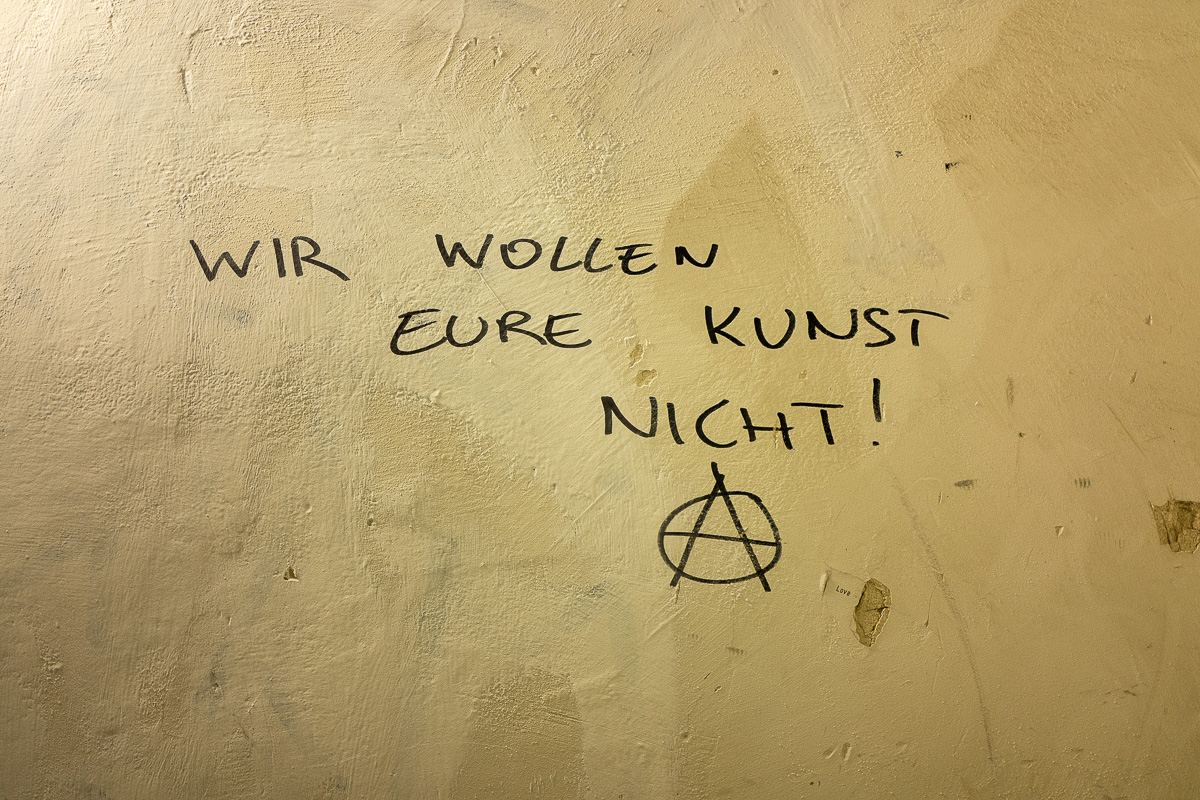 WIR WOLLEN
EURE KUNST
NICHT!
Love